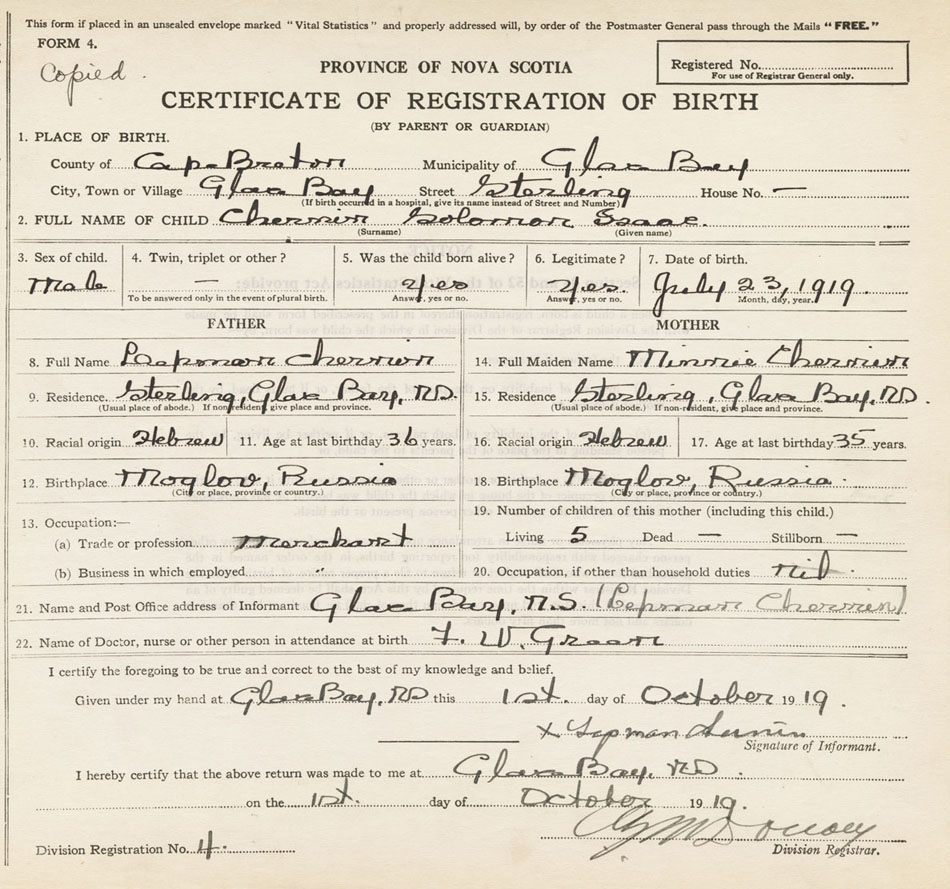 This form if placed in an unsealed envelope marked "Vital Statistics" and properly addressed will, by order of the Postmaster General pass through the Mails "FREE."
FORM 4.
Copied.
Registered No.
For use of Registrar General only.
PROVINCE OF NOVA SCOTIA
CERTIFICATE OF REGISTRATION OF BIRTH
(BY PARENT OR GUARDIAN)
1. PLACE OF BIRTH.
County of Cape Breton Municipality of Glace Bay
City, Town or Village Glace Bay Street Sterling House No. —
(If birth occurred in a hospital, give its name instead of Street and Number)
2. FULL NAME OF CHILD Chernin Solomon Isaac.
(Surname) (Given name)
3. Sex of child. 4. Twin, triplet or other? 5. Was the child born alive? 6. Legitimate? 7. Date of birth.
Male — yes yes. July 23, 1919.
To be answered only in the event of plural birth. Answer, yes or no. Answer, yes or no. Month, day, year.
FATHER MOTHER
8. Full Name Lepman Chernin 14. Full Maiden Name Minnie Chernin
9. Residence. Sterling, Glace Bay, NS. 15. Residence Sterling, Glace Bay, NS.
(Usual place of abode.) If non-resident, give place and province. (Usual place of abode.) If non-resident, give place and province.
10. Racial origin Hebrew 11. Age at last birthday 36 years. 16. Racial origin Hebrew 17. Age at last birthday 35 years.
12. Birthplace Moglow, Russia 18. Birthplace Moglow, Russia.
(City or place, province or country.) (City or place, province or country.)
13. Occupation:— 19. Number of children of this mother (including this child.)
(a) Trade or profession. Merchant Living 5 Dead — Stillborn —
(b) Business in which employed " 20. Occupation, if other than household duties nil.
21. Name and Post Office address of Informant Glace Bay, N.S. (Lepman Chernin)
22. Name of Doctor, nurse or other person in attendance at birth F. W. Green
I certify the foregoing to be true and correct to the best of my knowledge and belief.
Given under my hand at Glace Bay, NS this 1st. day of October 1919.
x Lepman Chernin
Signature of Informant.
I hereby certify that the above return was made to me at Glace Bay. NS.
on the 1st. day of October 1919.
Division Registration No. 4.
Division Registrar.